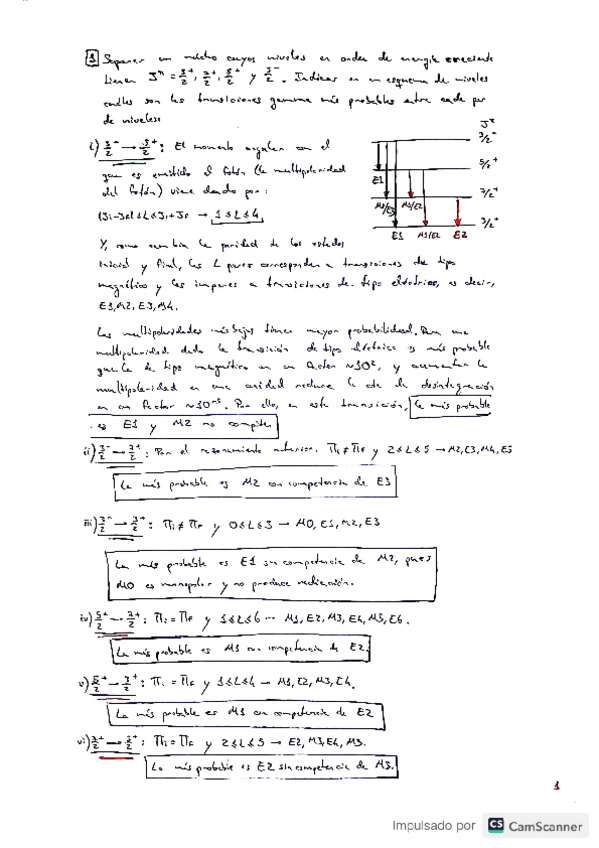 1 Suponer un núcleo cuyos niveles en orden de energía creciente
tienen J^π = 3/2⁺, 7/2⁺, 5/2⁺ y 3/2⁻. Indicar en un esquema de niveles
cuáles son las transiciones gamma más probables entre cada par
de niveles:
i) 3/2⁻ → 5/2⁺: El momento angular con el
que es emitido el fotón (la multipolaridad
del fotón) viene dado por:
|Ji-Jf| ≤ L ≤ Ji+Jf → 1 ≤ L ≤ 4.
J^π
3/2⁻
5/2⁺
7/2⁺
3/2⁺
E1
M2/E3
M1/E2
E1
M1/E2
E2
Y, como cambia la paridad de los estados
inicial y final, los L pares corresponden a transiciones de tipo
magnético y los impares a transiciones de tipo eléctrico, es decir,
E1, M2, E3, M4.
Las multipolaridades más bajas tienen mayor probabilidad. Para una
multipolaridad dada la transición de tipo eléctrico es más probable
que la de tipo magnético en un factor ~10², y aumentar la
multipolaridad en una unidad reduce la cte de desintegración
en un factor ~10⁻⁵. Por ello, en esta transición, la más probable
es E1 y M2 no compite.
ii) 3/2⁻ → 7/2⁺: Por el razonamiento anterior. Πi ≠ Πf y 2 ≤ L ≤ 5 → M2, E3, M4, E5
La más probable es M2 con competencia de E3
iii) 3/2⁻ → 3/2⁺: Πi ≠ Πf y 0 ≤ L ≤ 3 → M0, E1, M2, E3
La más probable es E1 sin competencia de M2, pues
M0 es monopolar y no produce radiación.
iv) 5/2⁺ → 7/2⁺: Πi = Πf y 1 ≤ L ≤ 6 → M1, E2, M3, E4, M5, E6.
La más probable es M1 con competencia de E2.
v) 5/2⁺ → 3/2⁺: Πi = Πf y 1 ≤ L ≤ 4 → M1, E2, M3, E4.
La más probable es M1 con competencia de E2
vi) 7/2⁺ → 3/2⁺: Πi = Πf y 2 ≤ L ≤ 5 → E2, M3, E4, M5.
La más probable es E2 sin competencia de M3.
1
Impulsado por CS CamScanner